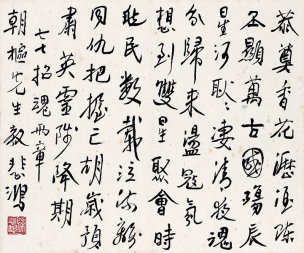 奠香花瀝酒陳
丕顯萬古國殤辰
星河耿耿淒清夜魂
兮歸來盪寇氛
想到雙星聚會時
兆民數載泣流離
同仇把握亡胡歲預
肅英靈陟降期
七七招魂兩章
朝樞先生教 悲鴻